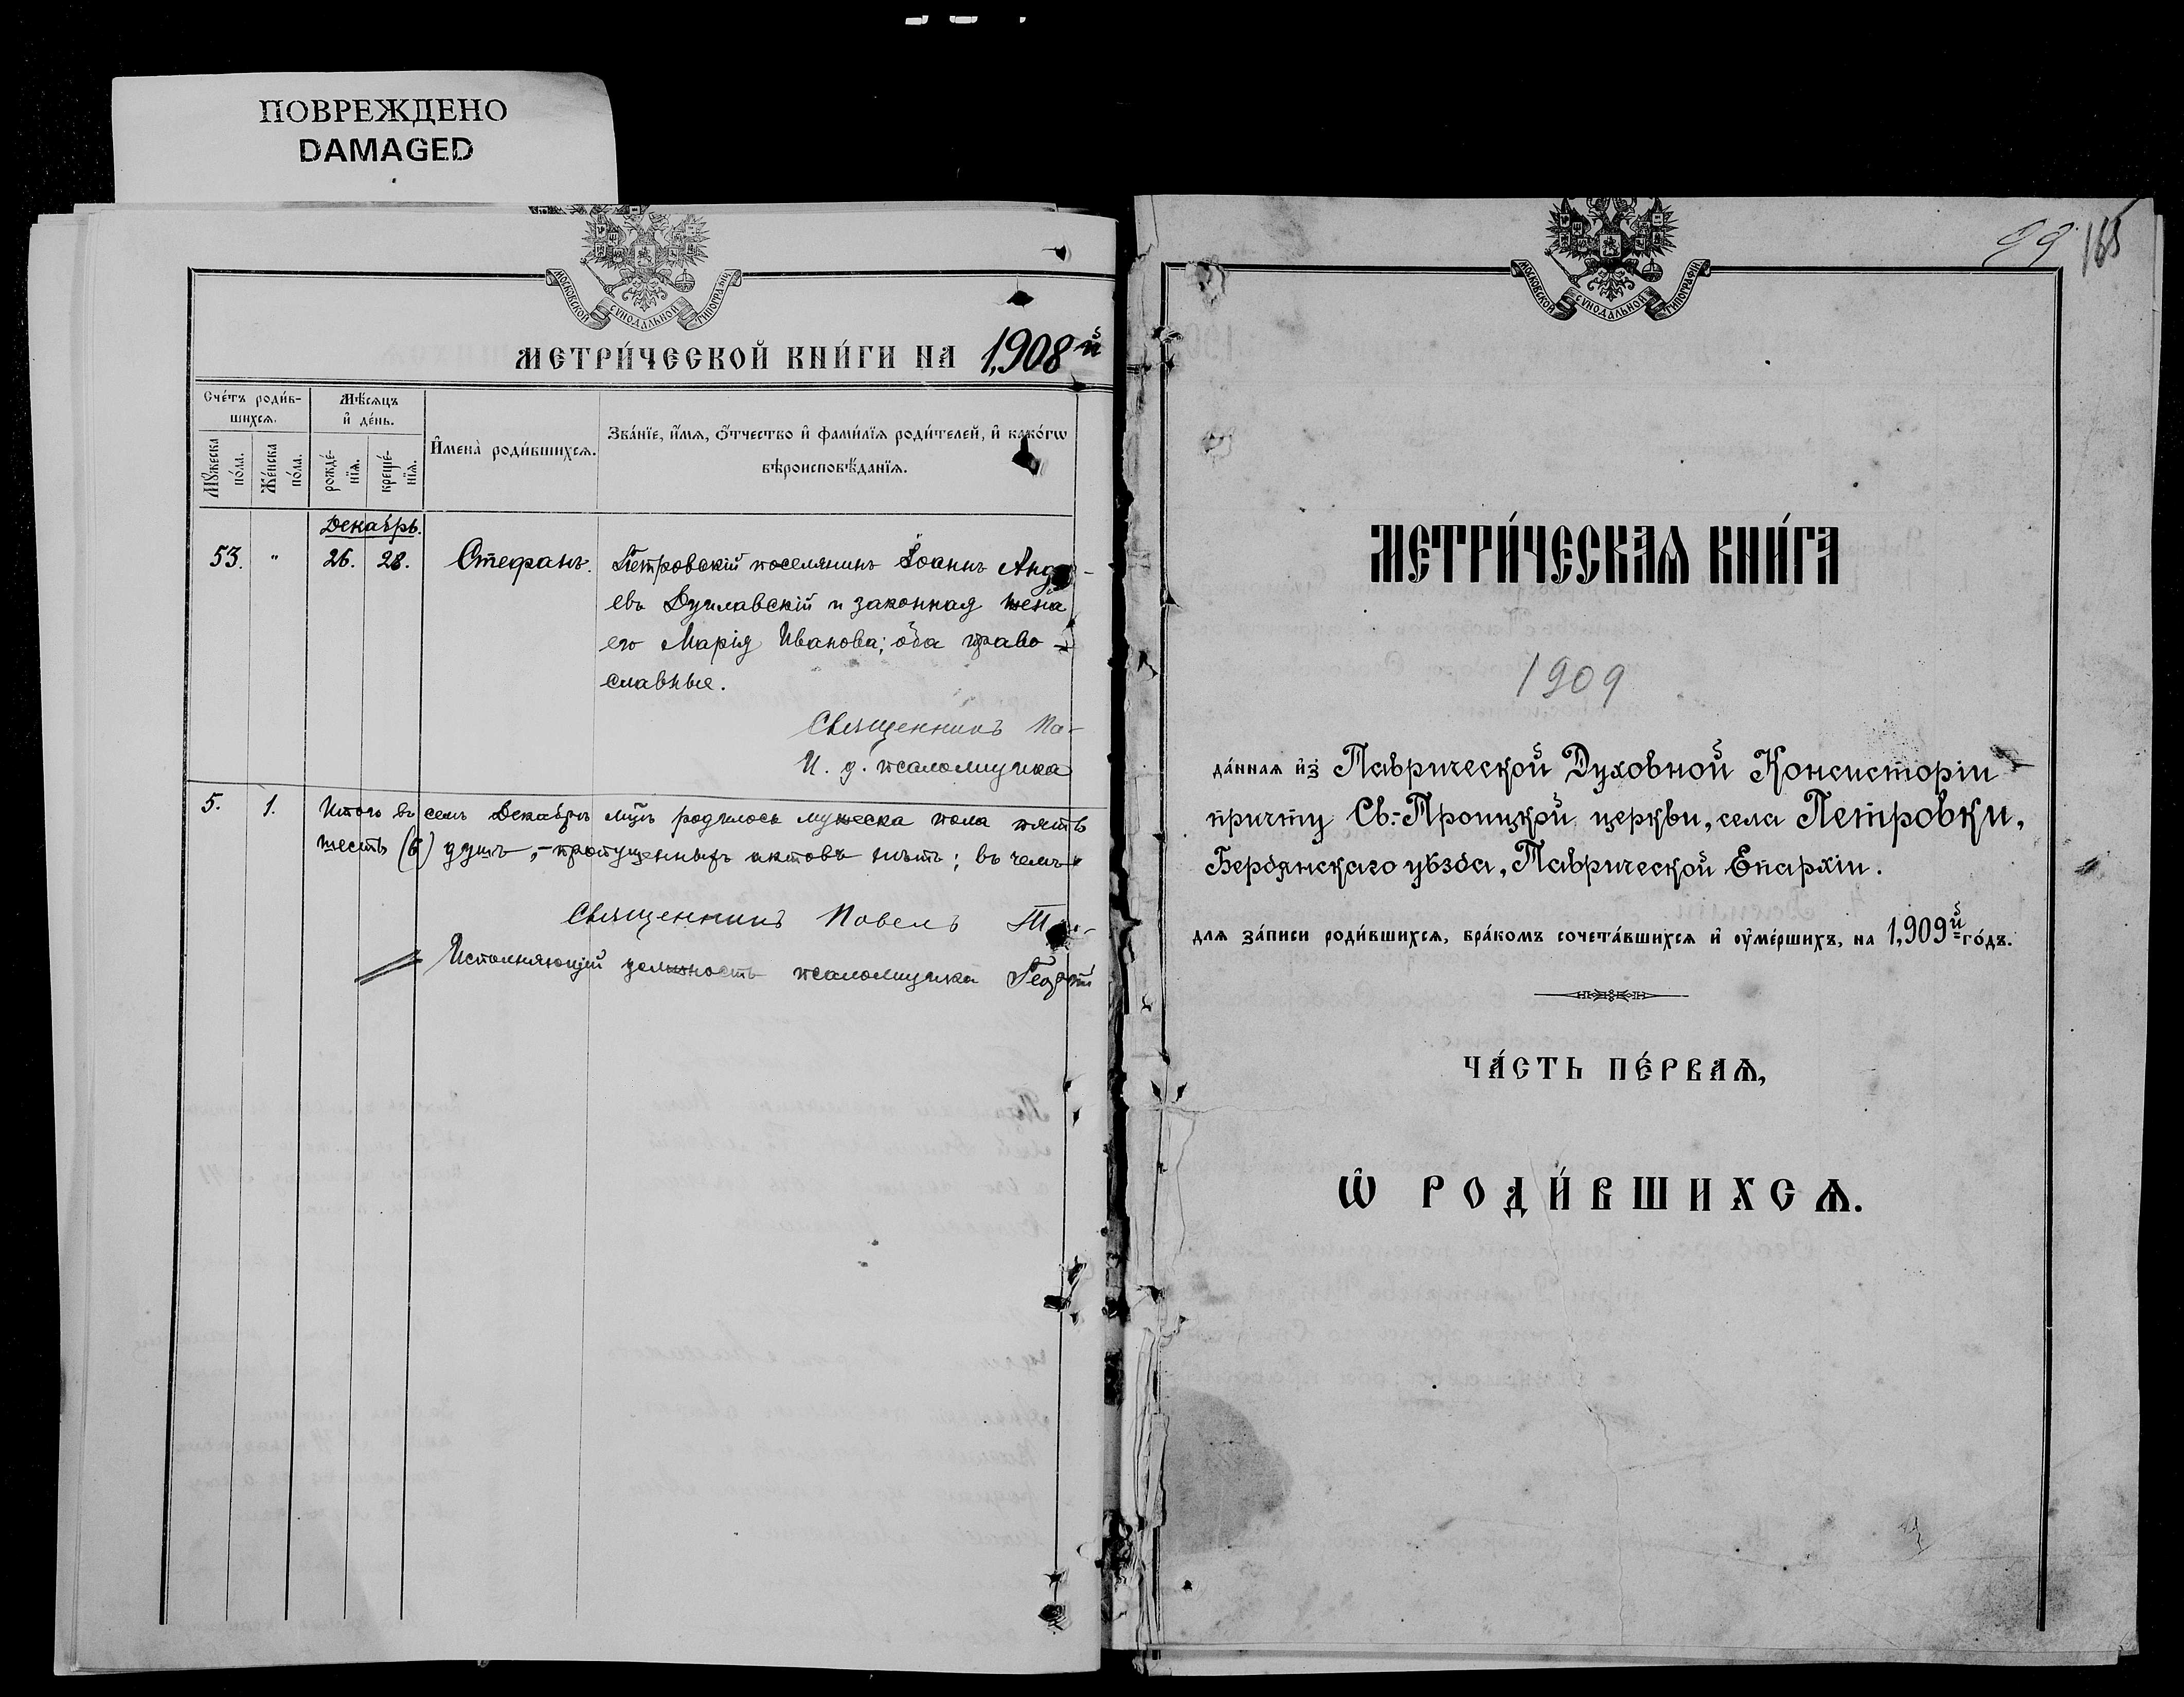 ПОВРЕЖДЕНО
DAMAGED
МОСКОВСКОЙ СѴНОДАЛЬНОЙ ТИПОГРАФІИ
МЕТРИ́ЧЕСКОЙ КНИ́ГИ НА 1,908й
Сче́тъ роди́вшихсѧ.
Мѣ́сѧцъ и҆ де́нь.
Мꙋ́жеска по́ла.
Же́нска по́ла.
рожде́нїѧ.
креще́нїѧ.
И҆мена̀ роди́вшихсѧ.
Зва́нїе, и҆́мѧ, ѻ҆́тчество и҆ фами́лїѧ роди́телей, и҆ како́гѡ
вѣроисповѣ́данїѧ.
Декабрь.
53. " 26. 28. Стефанъ. Петровскій поселянинъ Іоаннъ
евъ Дуилавскій и законная жена
его Марія Иванова; оба право-
славные.
Священникъ Па-
И. д. псаломщика
5. 1. Итого въ семъ Декабрѣ мцѣ родилось мужеска пола пять
шесть (6) душъ,- пропущенныхъ актовъ нѣтъ; въ чемъ и
Священникъ Павелъ
Исполняющій должность псаломщика
99 165
МОСКОВСКОЙ СѴНОДАЛЬНОЙ ТИПОГРАФІИ
МЕТРИ́ЧЕСКАѦ КНИ́ГА
1909
да́ннаѧ и҆з̾ Таврической Духовной Консисторіи
причту Св.-Троицкой церкви, села Петровки,
Бердянскаго уѣзда, Таврической Епархіи.
длѧ за́писи роди́вшихсѧ, бра́комъ сочета́вшихсѧ и҆ оу҆ме́ршихъ, на 1,909й го́дъ.
ЧА́СТЬ ПЕ́РВАѦ,
Ѡ҆ РОДИ́ВШИХСѦ.